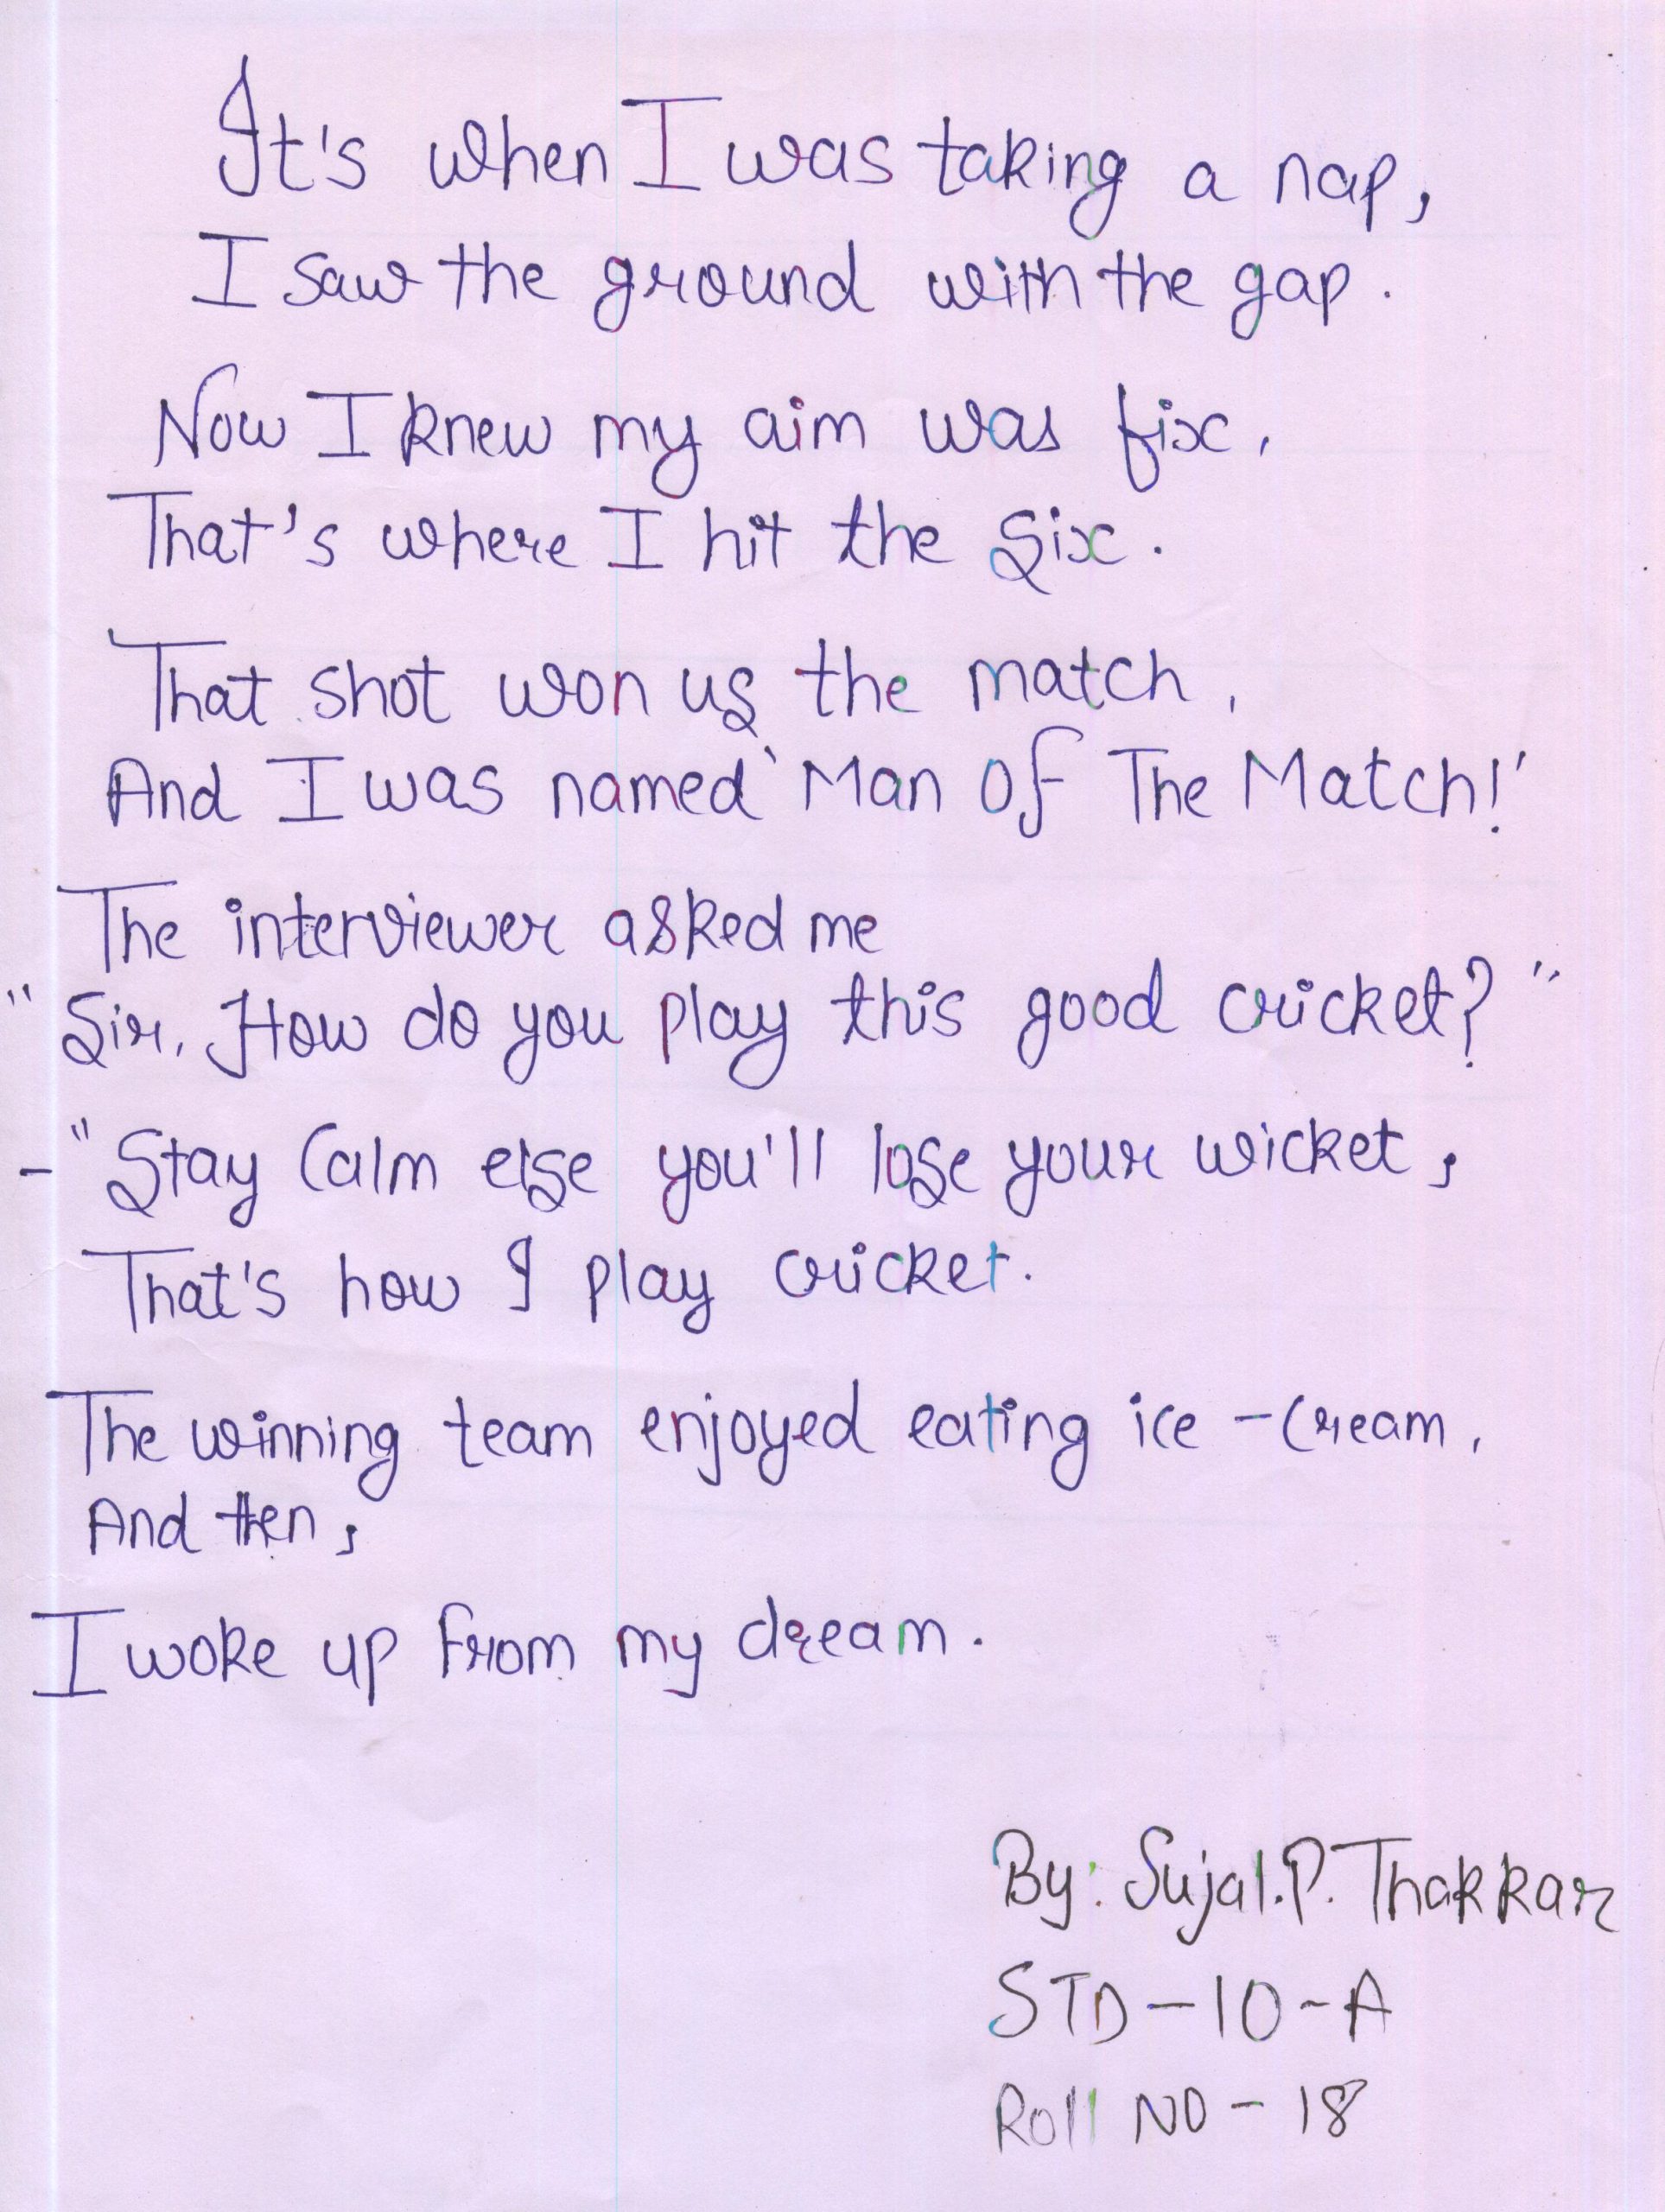 It's when I was taking a nap,
I saw the ground with the gap.
Now I knew my aim was fix,
That's where I hit the Six.
That shot won us the match,
And I was named 'Man Of The Match!'
The interviewer asked me
"Sir, How do you play this good cricket?"
-"Stay Calm else you'll lose your wicket,
That's how I play cricket.
The winning team enjoyed eating ice-cream,
And then,
I woke up from my dream.
By: Sujal.P. Thakkar
STD-10-A
Roll NO-18